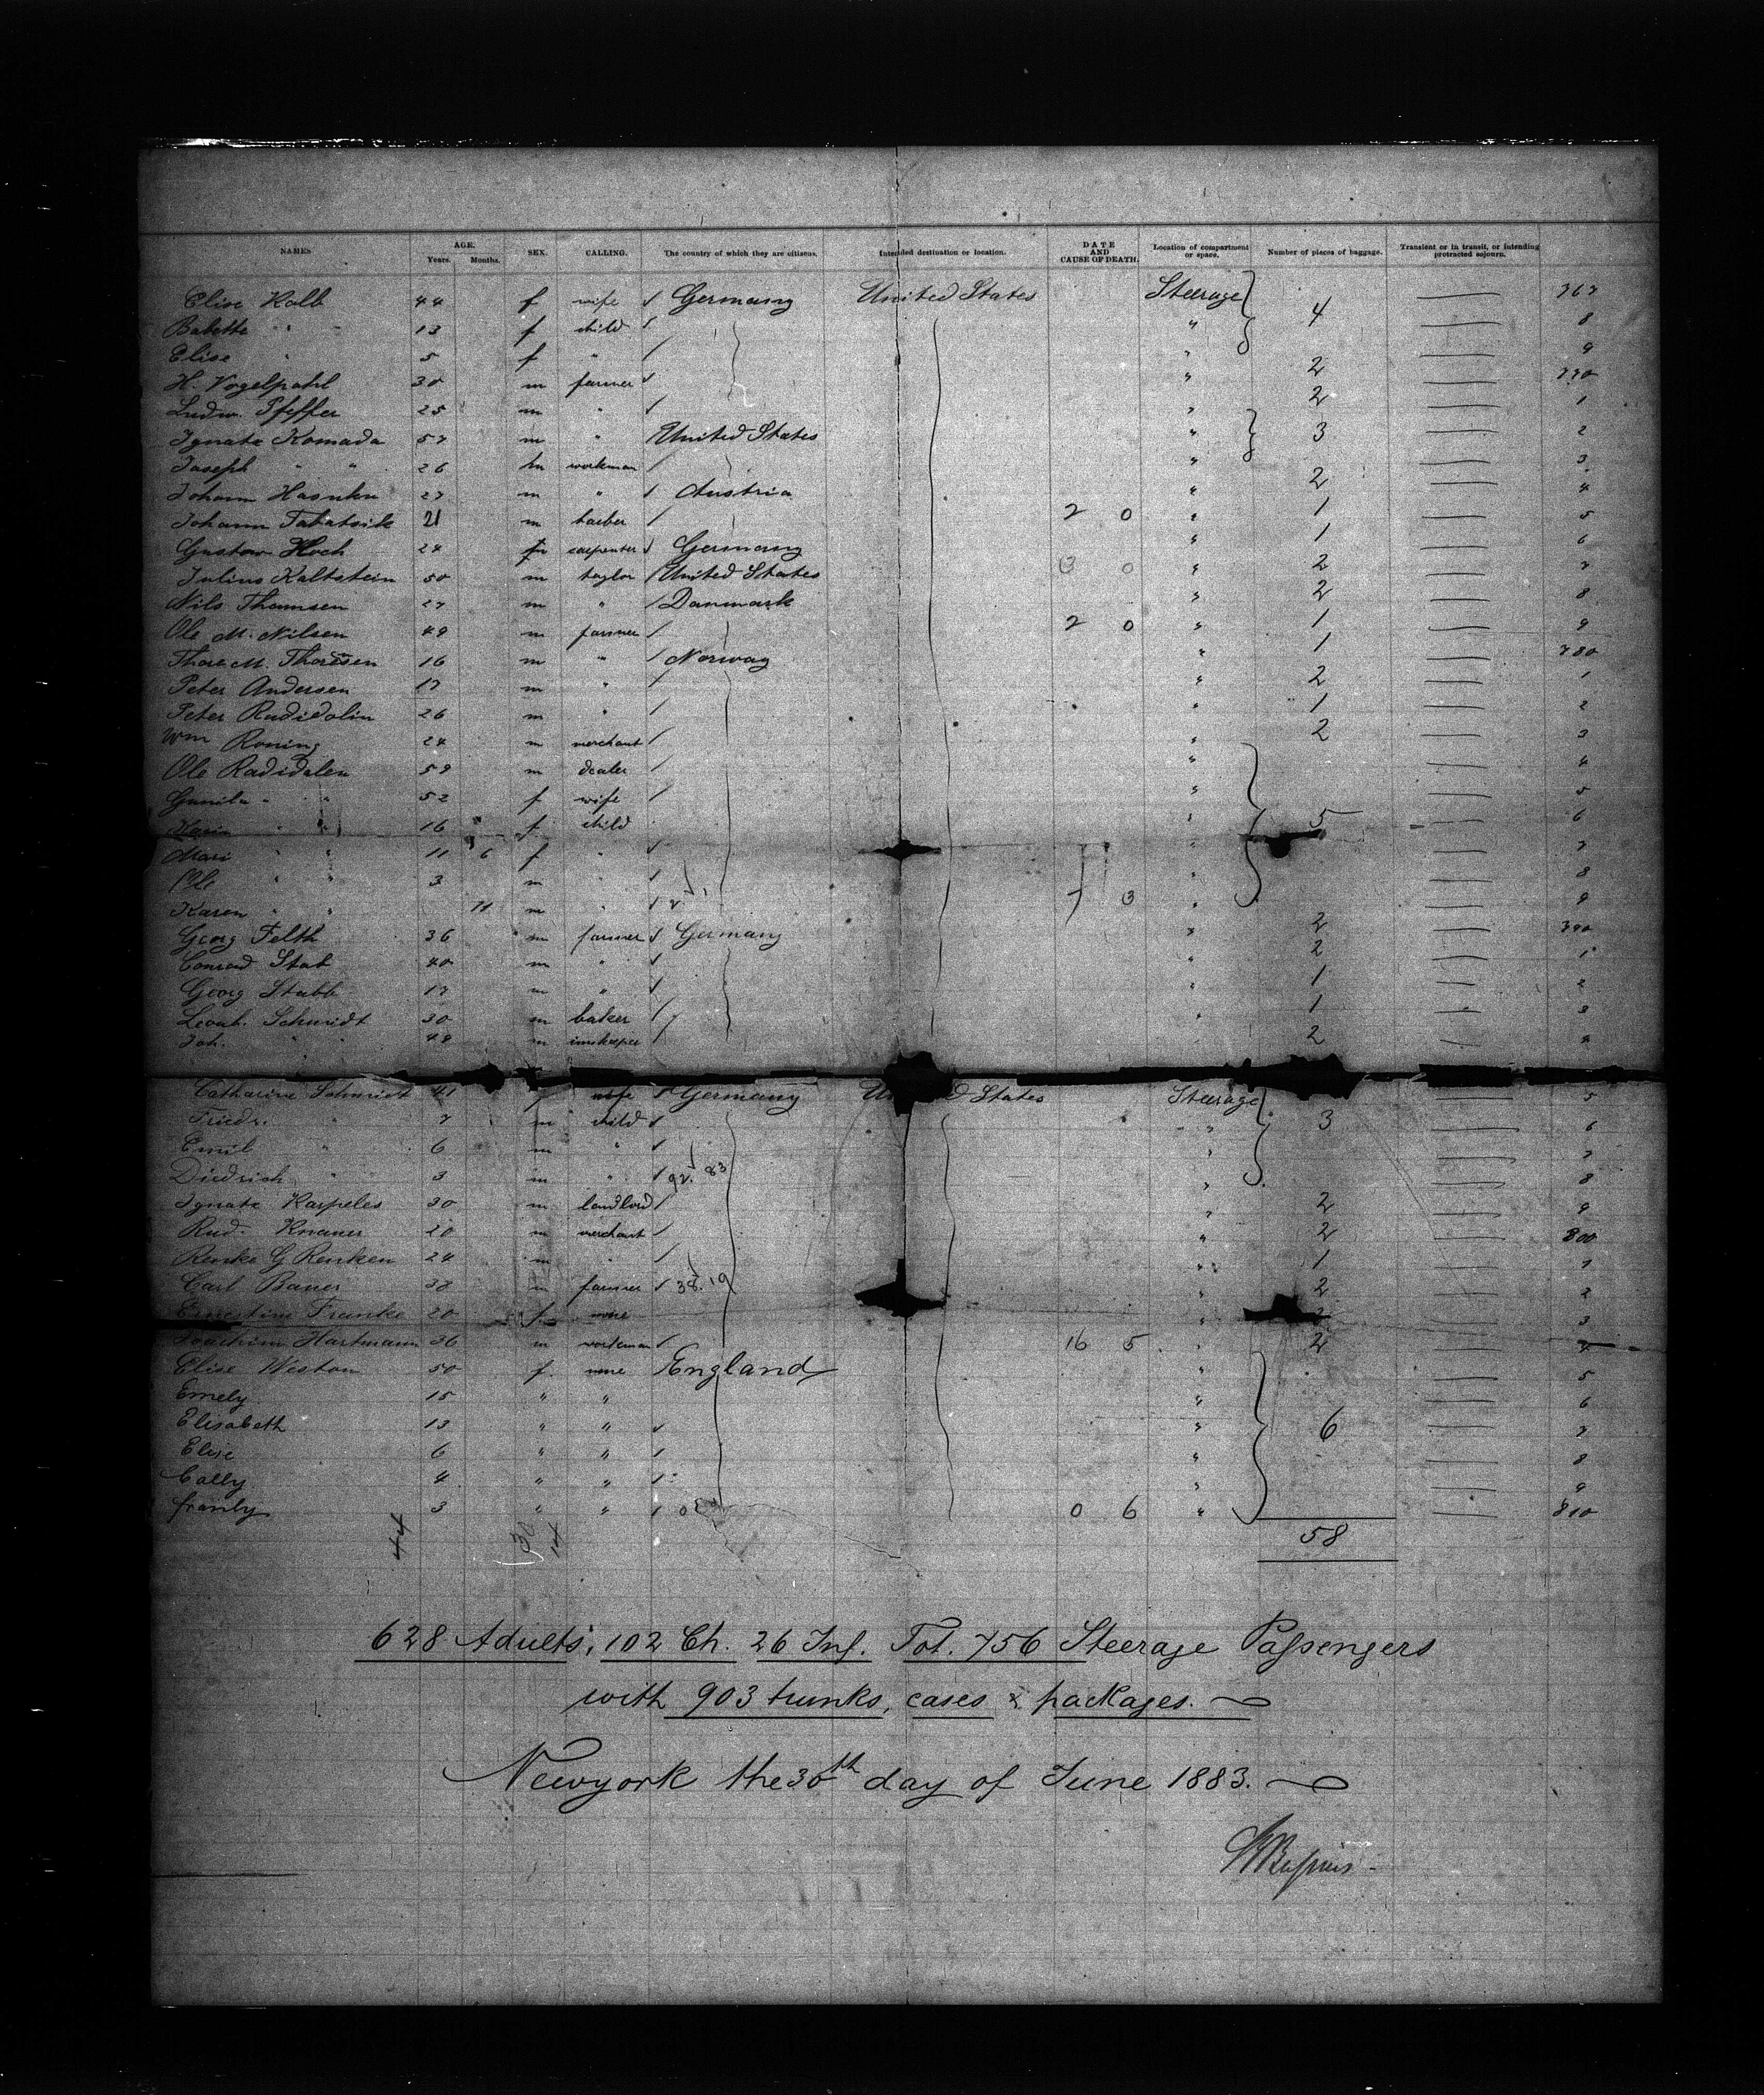 NAMES. AGE. SEX. CALLING. The country of which they are citizens. Intended destination or location. DATE AND CAUSE OF DEATH. Location of compartment or space. Number of pieces of baggage. Transient or in transit, or intending protracted sojourn.
Years. Months.
Elise Kolb 44 f wife Germany United States Steerage 4 767
Babette " " 13 f child " 8
Elise " 5 f " " 9
H. Vogelpohl 30 m farmer " 2 770
Ludw. Pfeffer 25 m " " 2 1
Ignatz Komada 57 m " United States " 3 2
Joseph " " 26 m workman " 3
Johann 27 m " Austria " 2 4
Johann 21 m " 1 5
Gustav Hoch 24 m carpenter Germany " 1 6
Julius Kaltstein 50 m taylor United States " 2 7
Nils Thomsen 27 m " Danmark " 2 8
Ole M. Nilsen 49 m farmer 2 0 " 1 9
Thore M. Thoresen 16 m " Norway " 1 780
Peter Andersen 17 m " " 2 1
Peter 26 m " " 1 2
Wm Roning 24 m merchant " 2 3
Ole Radidalen 59 m dealer " 4
Gunild " " 52 f wife " 5
Karin " " 16 f child " 5 6
Mari " " 11 6 f " " 7
Ole " " 3 m " " 8
Karen " " 11 m " 7 3 " 9
Georg Felth 36 m farmer Germany " 2 790
Conrad Stab 40 m " " 2 1
Georg Stabb 17 m " " 1 2
Leonh. Schmidt 30 m baker " 1 3
Joh. " " 49 m 2 4
Catharine Schmidt 41 wife Germany United States Steerage 5
Friedr. " 7 m child " 3 6
Emil " 6 m " " 7
Diedrich " 3 m " 92. 83 " 8
Ignatz Karpeles 30 m landlord " 2 9
Rud. Knauer 20 m merchant " 2 800
Renke G Renken 24 m " " 1 1
Carl Bauer 38 m farmer 38. 19 " 2 2
Ernestine Franke 20 f none " 2 3
Joachim Hartmann 36 m workman 16 5 " 2 4
Elise Weston 50 f. none England " 5
Emely 15 " " " 6
Elisabeth 13 " " " 6 7
Elise 6 " " " 8
Cally 4 " " " 9
franly 3 " " 0 6 " 810
44 30 14 58
628 Adults, 102 Ch. 26 Inf. Tot. 756 Steerage Passengers
with 903 trunks, cases & packages.
Newyork the 30th day of June 1883.